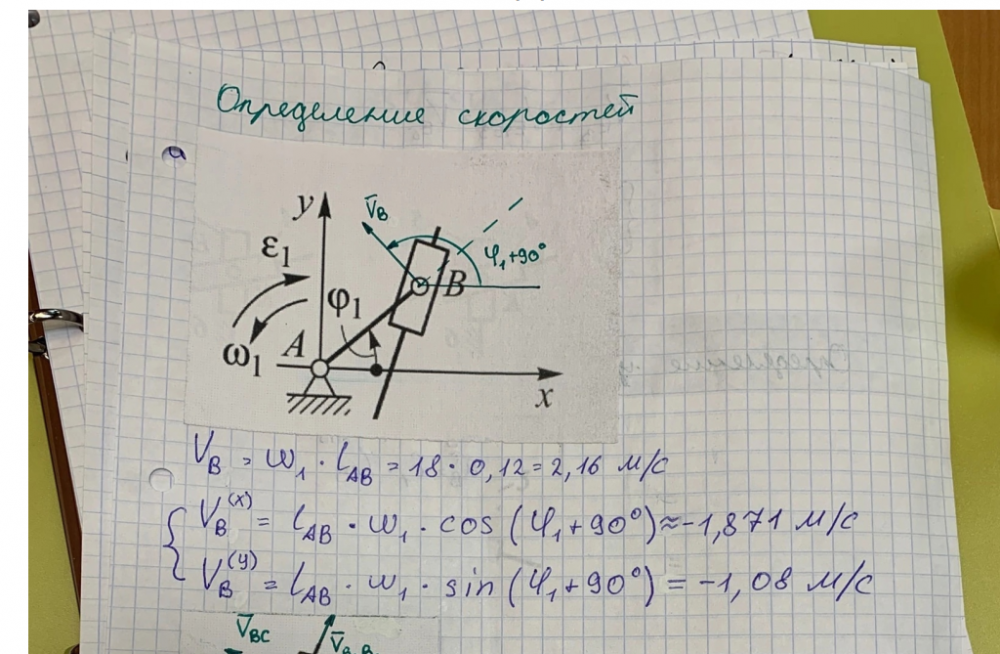 Определение скоростей
y
V̄_B
ε₁
φ₁+90°
φ₁
B
A
ω₁
x
V_B = ω₁ · l_AB = 18 · 0,12 = 2,16 м/с
V_B^(x) = l_AB · ω₁ · cos (φ₁+90°) ≈ -1,871 м/с
V_B^(y) = l_AB · ω₁ · sin (φ₁+90°) = -1,08 м/с
V̄_BC